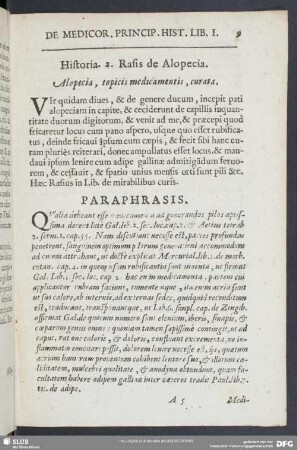 DE MEDICOR. PRINCIP. HIST. LIB. I. 9
Historia. 2. Rasis de Alopecia.
Alopecia, topicis medicamentis, curata.
VIr quidam diues, & de genere ducum, incepit pati
alopeciam in capite, & ceciderunt de capillis in quan-
titate duorum digitorum, & venit ad me, & præcepi quod
fricaretur locus cum pano aspero, usque quo esset rubifica-
tus, deinde fricaui ipsum cum cæpis, & fecit sibi hanc cu-
ram pluriès reiterari, donec ampullatus esset locus, & man-
daui ipsum lenire cum adipe gallinæ ad mitigādum feruo-
rem, & cessauit, & spatio unius mensis orti sunt pili &c.
Hæc Rasius in Lib. de mirabilibus curis.
PARAPHRASIS.
QValia debeant esse medicamenta ad generandos pilos aptis-
sima docent late Gal. lib. 1. sec. loc. cap. 2. & Aetius tetrab.
2. serm. 2. cap. 55. Nam dicendum necesse est, partes profundas
penetrent, sanguinem optimum pilorum generationi accommodum
ad cutem attrahant, ut doctè explicat Mercurial. lib. de morb.
cutan. cap. 2. in quem usum rubificantia sunt inuenta, ut firmat
Gal. lib. 1. sec. loc. cap. 2. hæc enim medicamenta, partem cui
applicantur rubram faciunt, tumentemque, ita enim acria sunt
ut suo calore, ab internis, ad externas sedes, quidquid reconditum
est, traducant, transponantque, ut Lib. 6. simpl. cap. de Zingib.
affirmat Galat. quorum numero sunt elenium, iberis, sinapis, &
cæparum genus omne: quoniam tamen sapissimè contingit, ut ad
caput, ratione caloris, & doloris, confluant excrementa, ne in-
flammatio emeriter possit, dolorem lenire necesse est, ijs, quæ tam
acrium humorum prouentum cohibent lentore suo, & illorum ca-
liditatem, mulcebri qualitate, & anodyna obtundunt, quam fa-
cultatem habere adipem gallinæ inter cæteros tradit Paul. lib. 7.
tit. de adipe.
A 5 Medi-
SLUB
Wir führen Wissen.
DFG